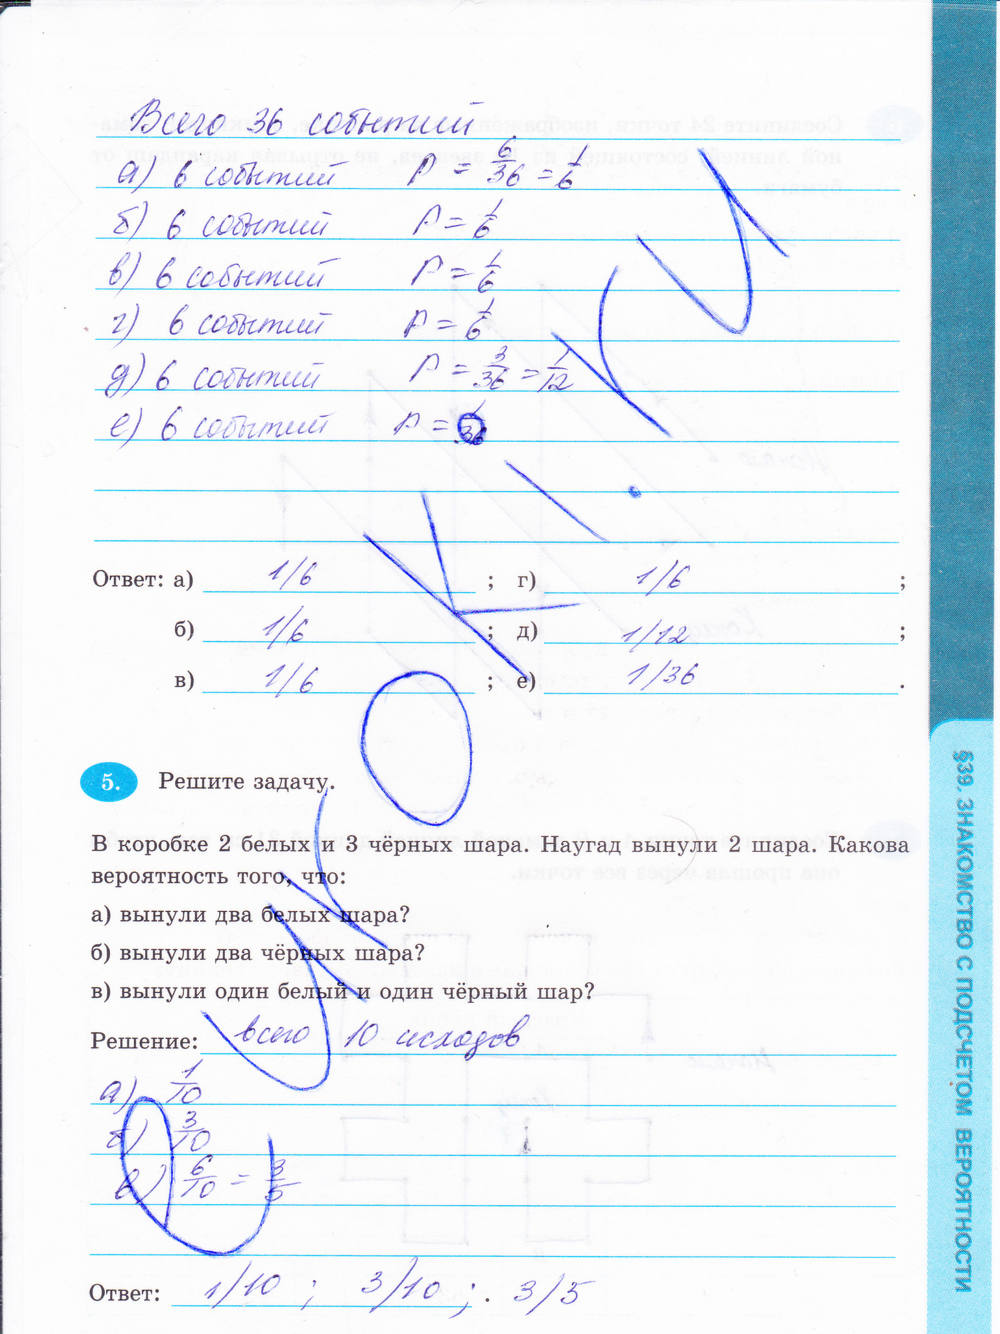 Всего 36 событий
а) 6 событий P = 6/36 = 1/6
б) 6 событий P = 1/6
в) 6 событий P = 1/6
г) 6 событий P = 1/6
д) 6 событий P = 3/36 = 1/12
е) 6 событий P = 1/36
Ответ: а) 1/6 ; г) 1/6 ;
б) 1/6 ; д) 1/12 ;
в) 1/6 ; е) 1/36 .
5. Решите задачу.
В коробке 2 белых и 3 чёрных шара. Наугад вынули 2 шара. Какова
вероятность того, что:
а) вынули два белых шара?
б) вынули два чёрных шара?
в) вынули один белый и один чёрный шар?
Решение: всего 10 исходов
а) 1/10
б) 3/10
в) 6/10 = 3/5
Ответ: 1/10 ; 3/10 ; . 3/5
§39. ЗНАКОМСТВО С ПОДСЧЕТОМ ВЕРОЯТНОСТИ